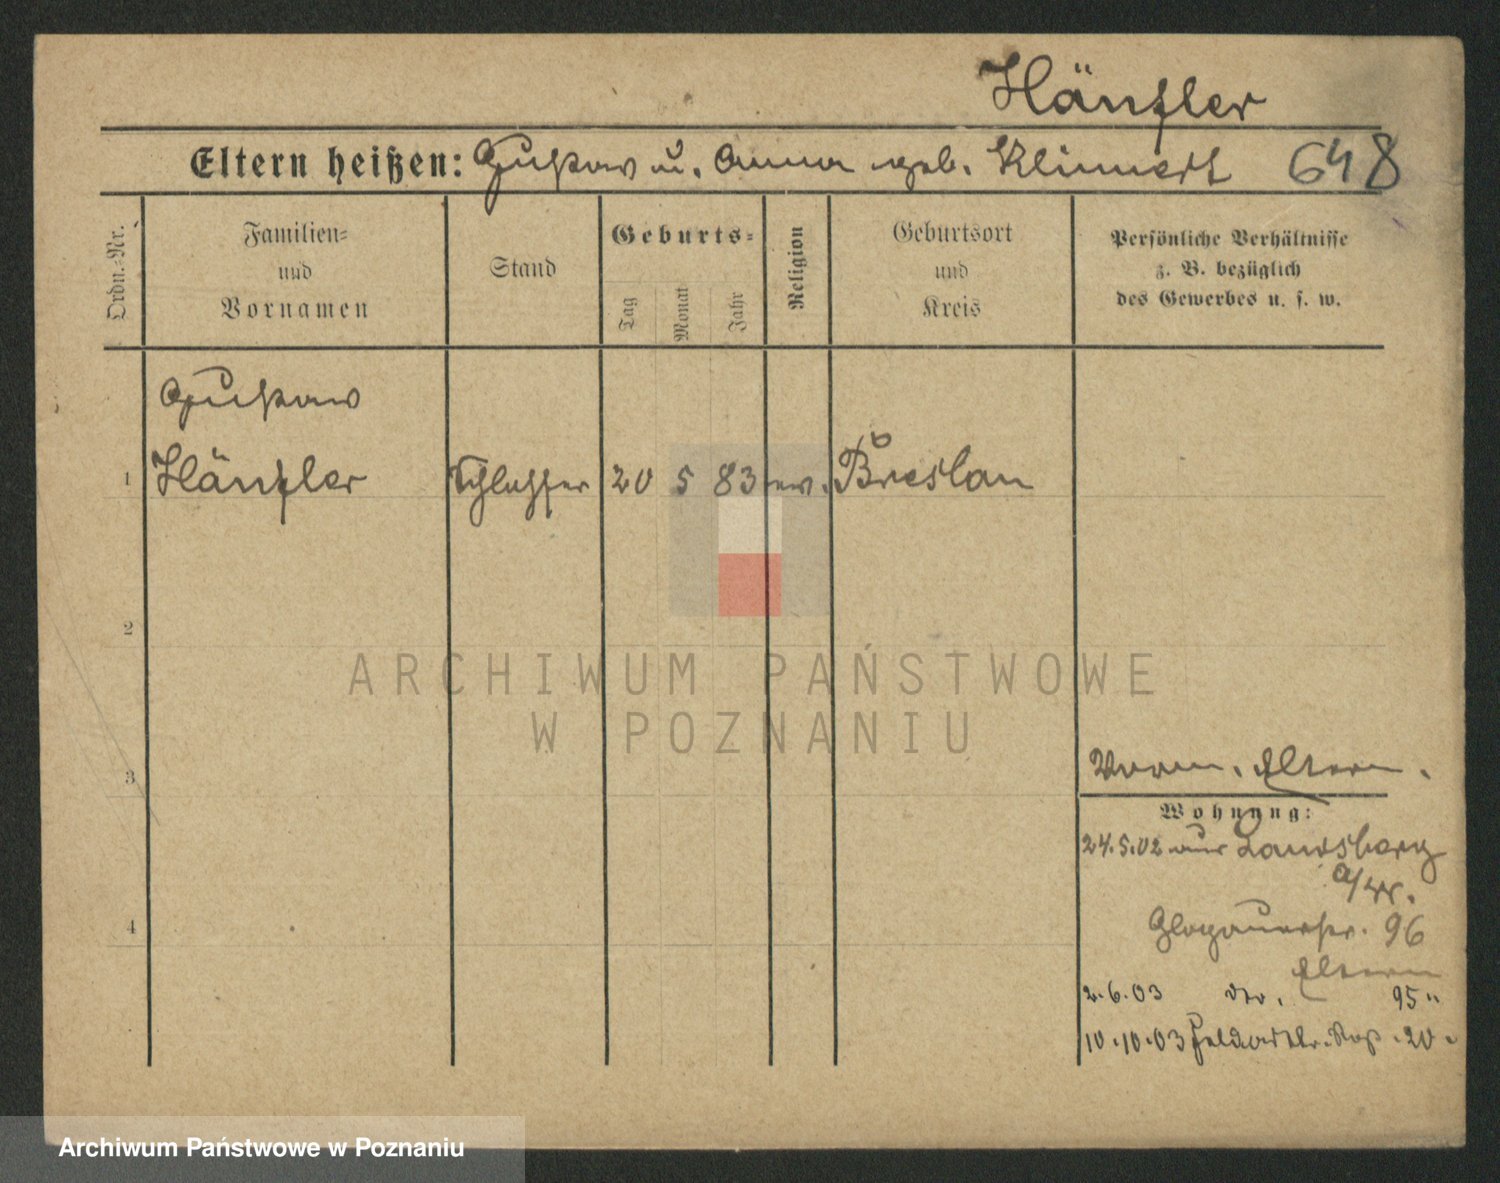 Hänsler
Eltern heißen: Gustav u. Anna geb. Klinnert 648
Ordn.-Nr.
Familien-
und
Vornamen
Stand
Geburts-
Tag
Monat
Jahr
Religion
Geburtsort
und
Kreis
Persönliche Verhältnisse
z. B. bezüglich
des Gewerbes u. s. w.
Gustav
1 Hänsler Schlosser 20 5 83 ev. Breslau
2
ARCHIWUM PAŃSTWOWE
W POZNANIU
3
Eltern.
Wohnung:
24.5.02 aus Landsberg
a/W.
4
Glogauerstr. 96
Eltern
2.6.03 dto. 95 "
10.10.03 Feldartlr. 20.
Archiwum Państwowe w Poznaniu